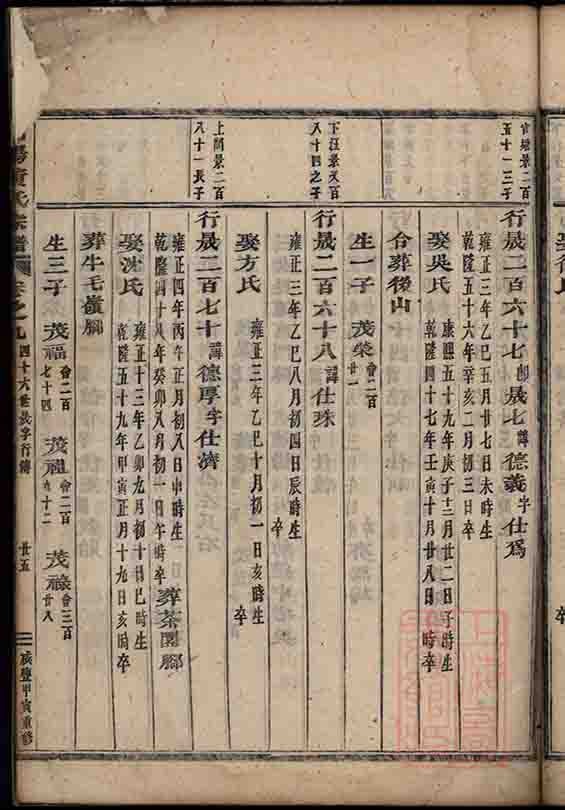 官塘景二百
五十一三子
行晟二百六十七 即晟七諱德義字仕為
雍正三年乙巳月廿七日未時生
乾隆五十六年辛亥二月初三日卒
娶吳氏
康熙五十九年庚子十二月廿二日子時生
乾隆四十七年壬寅十月廿八日時卒
合葬後山
生一子 茂榮會二百廿一
下汪景二百
八十四之子
行晟二百六十八諱仕珠
雍正三年乙巳八月初四日辰時生
卒
娶方氏
雍正三年乙巳十月初一日亥時生
卒
上閣景二百
八十一長子
行晟二百七十諱德厚字仕濟
雍正四年丙午正月初八日申時生
乾隆四十八年癸卯八月初一日午時卒
葬茶園腳
娶沈氏
雍正十三年乙卯九月初十日巳時生
乾隆五十九年甲寅正月十九日亥時卒
葬牛毛嶺腳
生三子 茂福會二百七十四 茂禮會二百九十二 茂祿會三百廿八
氏宗譜 卷之九 四十六世晟字行傳 廿五 咸豐甲寅重修